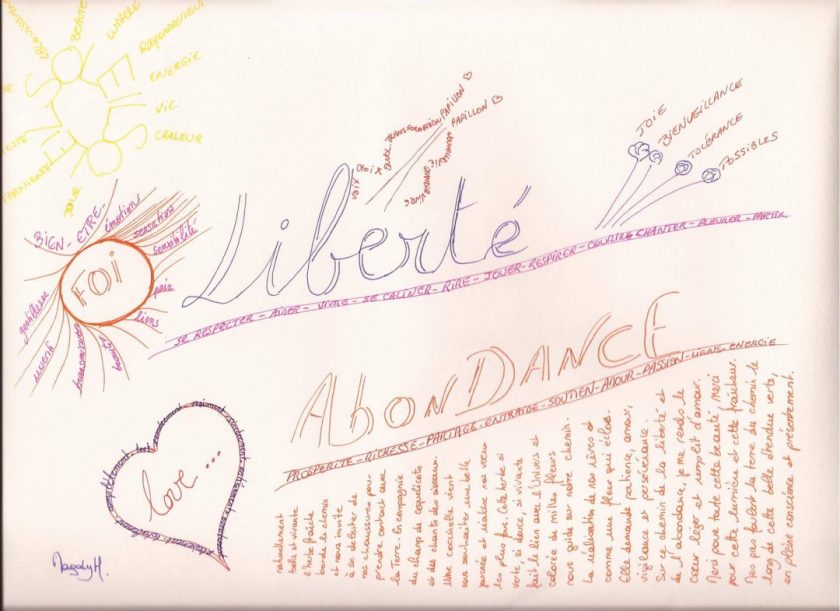 BEAUTÉ
LUMIÈRE
RAYONNEMENT
ENERGIE
VIE
CHALEUR
JOUR
FARNIENTE
SOLEIL
TRANSFORMATION PAPILLON
PAPILLON
voix
choix
JOIE
BIENVEILLANCE
TOLÉRANCE
POSSIBLES
BIEN-ETRE-
émotions
sensations
sensibilité
paix
liens
bonté
transmission
ressenti
gentillesse
FOI
Liberté
SE RESPECTER - AIMER - VIVRE - SE CALINER - RIRE - JOUER - RESPIRER - COURIR - CHANTER - PLEURER - PARTIR
ABONDANCE
PROSPERITE - RICHESSE - PARTAGE - ENTRAIDE - SOUTIEN - AMOUR - PASSION - LIENS - ENERGIE
love...
naturellement
belle et vivante
l'herbe fraîche
borde le chemin
et nous invite
à se délester de
nos chaussures pour
prendre contact avec
la Terre. En compagnie
du champ de coquelicots
et des chants des oiseaux.
Une coccinelle vient
nous souhaiter une belle
journée et réalise nos vœux
les plus fous. Cette herbe si
verte, si dense, si vivante
fait le lien avec l'Univers et
colorée de milles fleurs
nous guide sur notre chemin.
La réalisation de nos rêves est
comme une fleur qui éclôt.
Elle demande patience, amour,
vigilance et persévérance.
Sur ce chemin de la liberté et
de l'abondance, je me rends le
cœur léger et rempli d'amour.
Merci pour toute cette beauté, merci
pour cette lumière et cette fraîcheur.
Nos pas foulent la terre du chemin le
long de cette belle étendue verte,
en pleine conscience et présentement.
Magaly H.